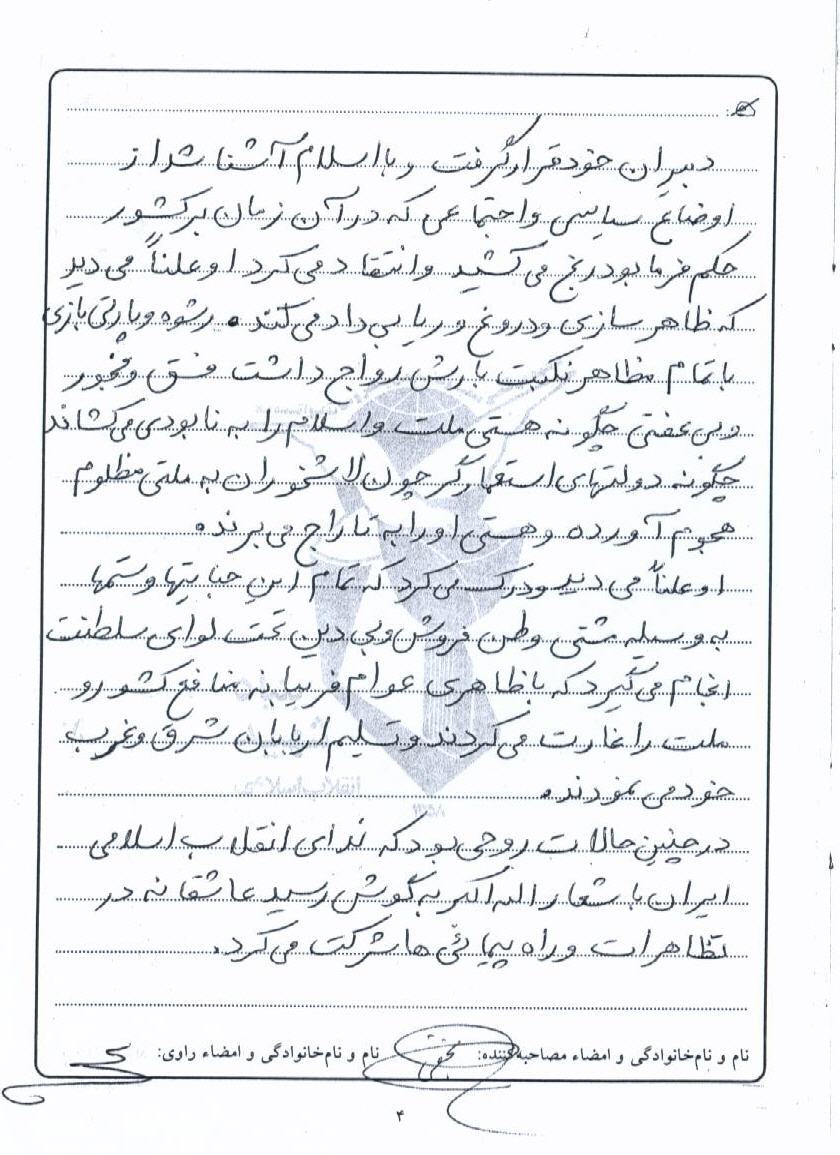 دبیران خود قرار گرفت و با اسلام آشنا شد از
اوضاع سیاسی و اجتماعی که در آن زمان بر کشور
حکم فرما بود رنج می کشید و انتقاد می کرد او علناً می دید
که ظاهر سازی و دروغ و ریا بی داد می کند. رشوه و پارتی بازی
با تمام مظاهر نکبت بارش رواج داشت فسق و فجور
و بی عفتی چگونه هستی ملت و اسلام را به نابودی می کشاند
چگونه دولتهای استعمارگر چون لاشخوران به ملتی مظلوم
هجوم آورده و هستی او را به تاراج می برند.
او علناً می دید و درک می کرد که تمام این جنایتها و ستمها
به وسیله مشتی وطن فروش و بی دین تحت لوای سلطنت
انجام می گیرد که با ظاهری عوام فریبانه منافع کشور و
ملت را غارت می کردند و تسلیم اربابان شرق و غرب
خود می نمودند.
در چنین حالات روحی بود که ندای انقلاب اسلامی
ایران با شعار الله اکبر به گوش رسید عاشقانه در
تظاهرات و راه پیمائی ها شرکت می کرد.
نام و نام خانوادگی و امضاء مصاحبه کننده: نام و نام خانوادگی و امضاء راوی:
۴